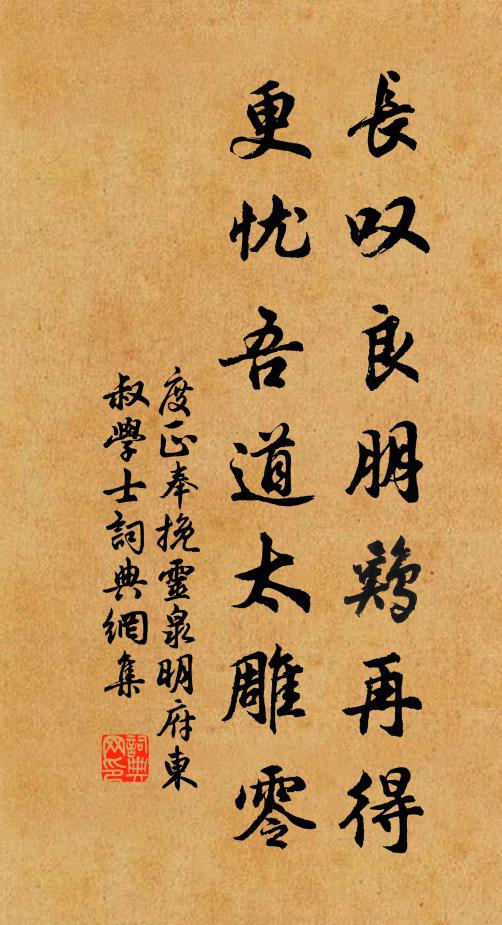 長叹良朋鷄再得
更忧吾道太雕零
度正奉挽靈泉明府東
叔學士詞典網集
詞典
网印